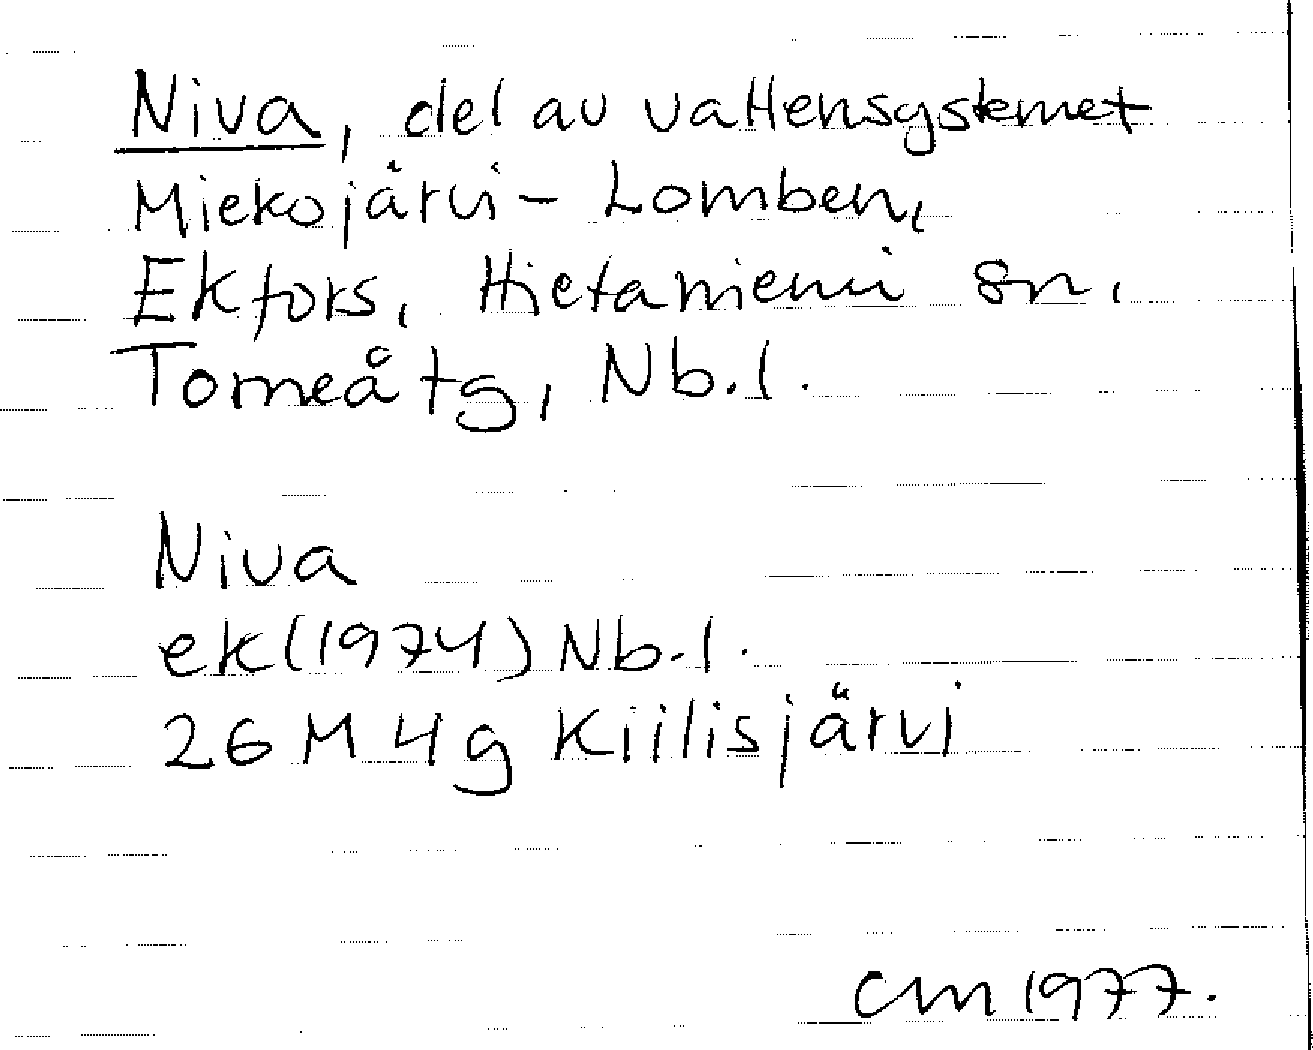 Niva, del av vattensystemet
Miekojärvi - Lomben,
Ekfors, Hietaniemi sn,
Torneå tg, Nb.l.
Niva
ek(1974) Nb.l.
26 M 4g Kiilisjärvi
CM 1977.